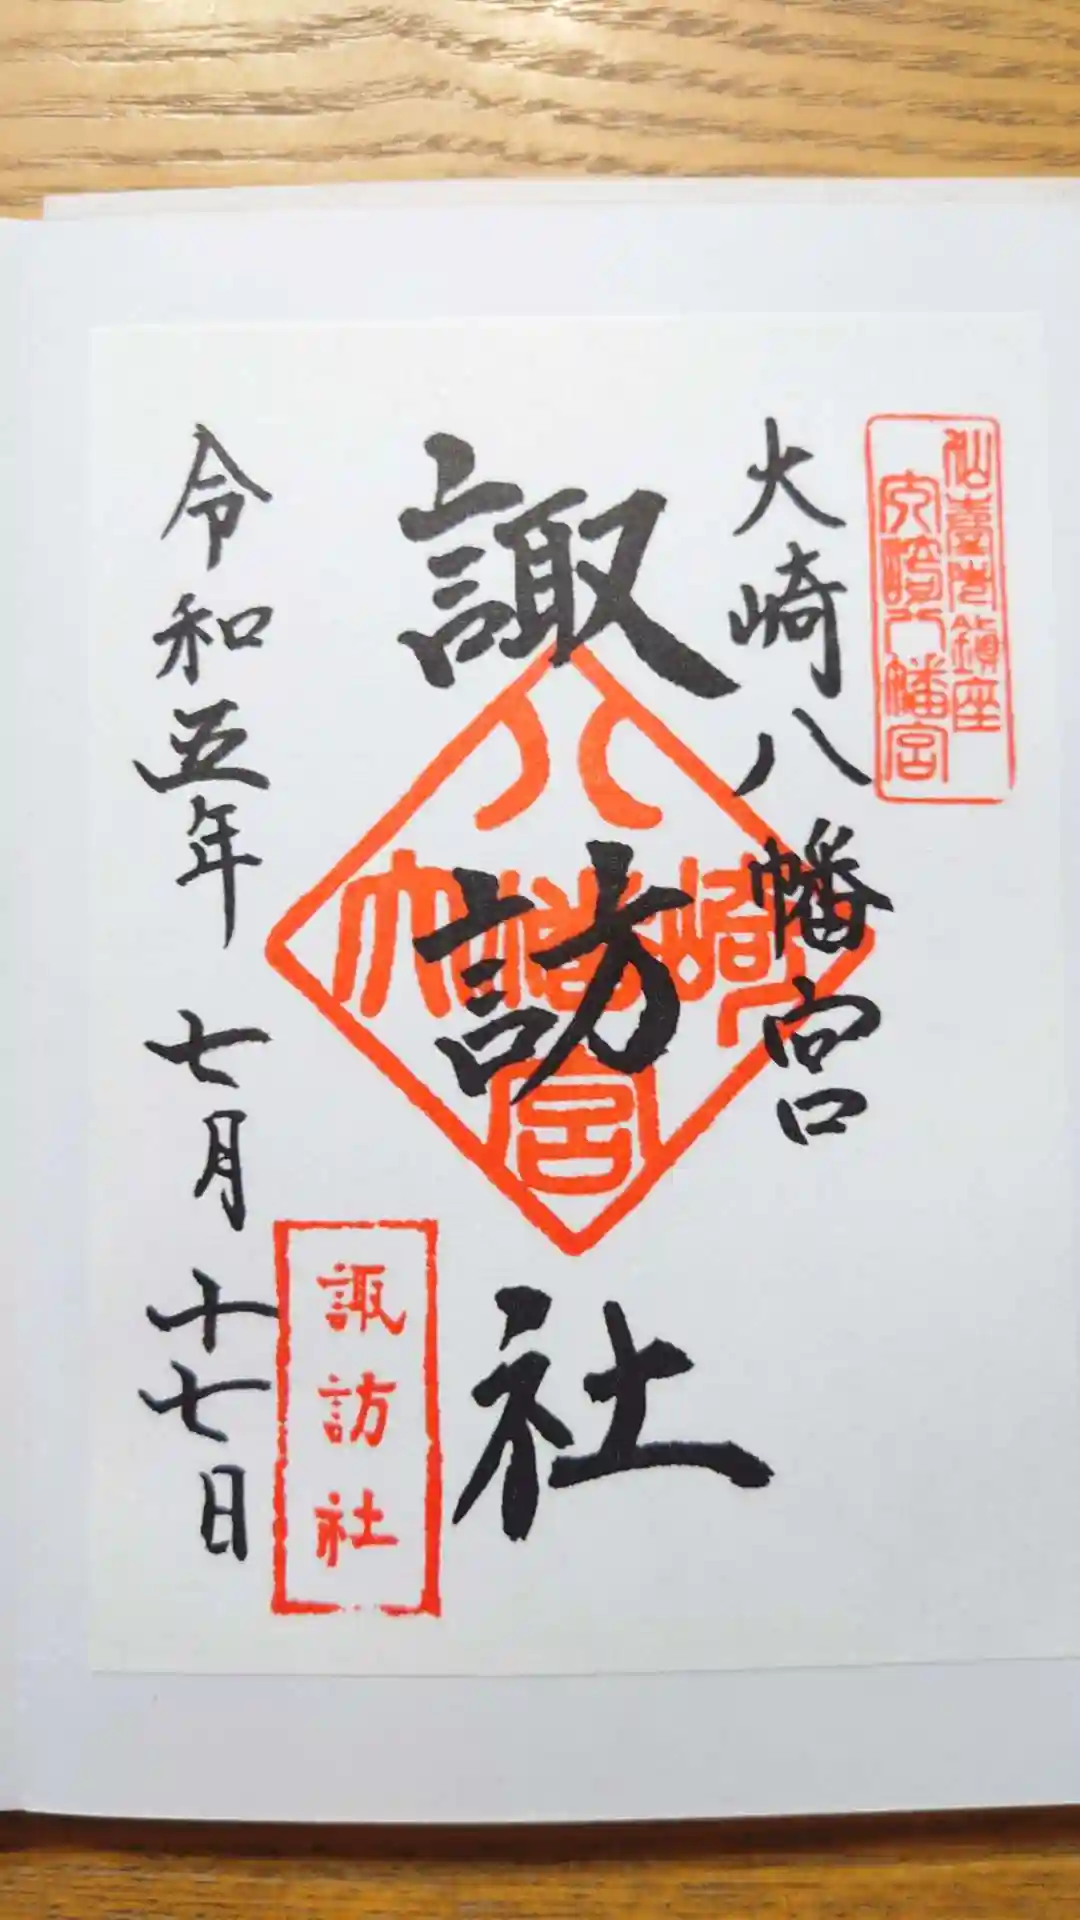 仙臺市鎮座
大崎八幡宮
大崎八幡宮
諏訪社
八幡
大崎
宮
諏訪社
令和五年七月十七日